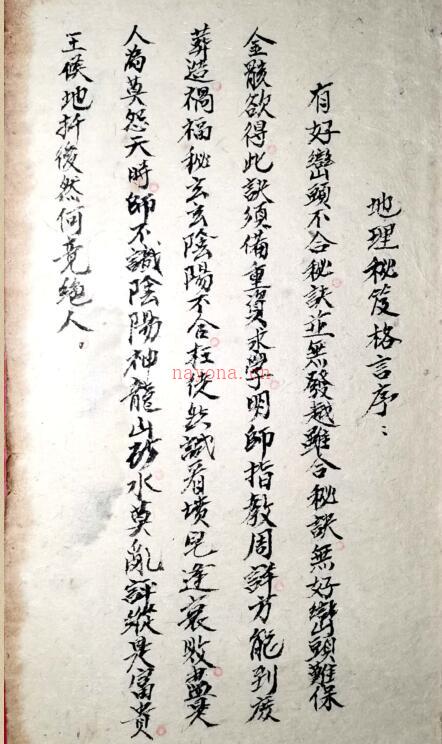 地理秘笈格言序：
有好巒頭不合秘訣並無發越雖合秘訣無好巒頭難保
金骸欲得此訣須備重資求學明師指教周詳方能到處
葬造禍福秘玄玄陰陽不合枉徒然試看墳兒逢衰敗盡是
人為莫怨天時師不識陰陽神龍山砂水莫亂評縱是富貴
王侯地拆後然何竟絕人。
nayona.cn